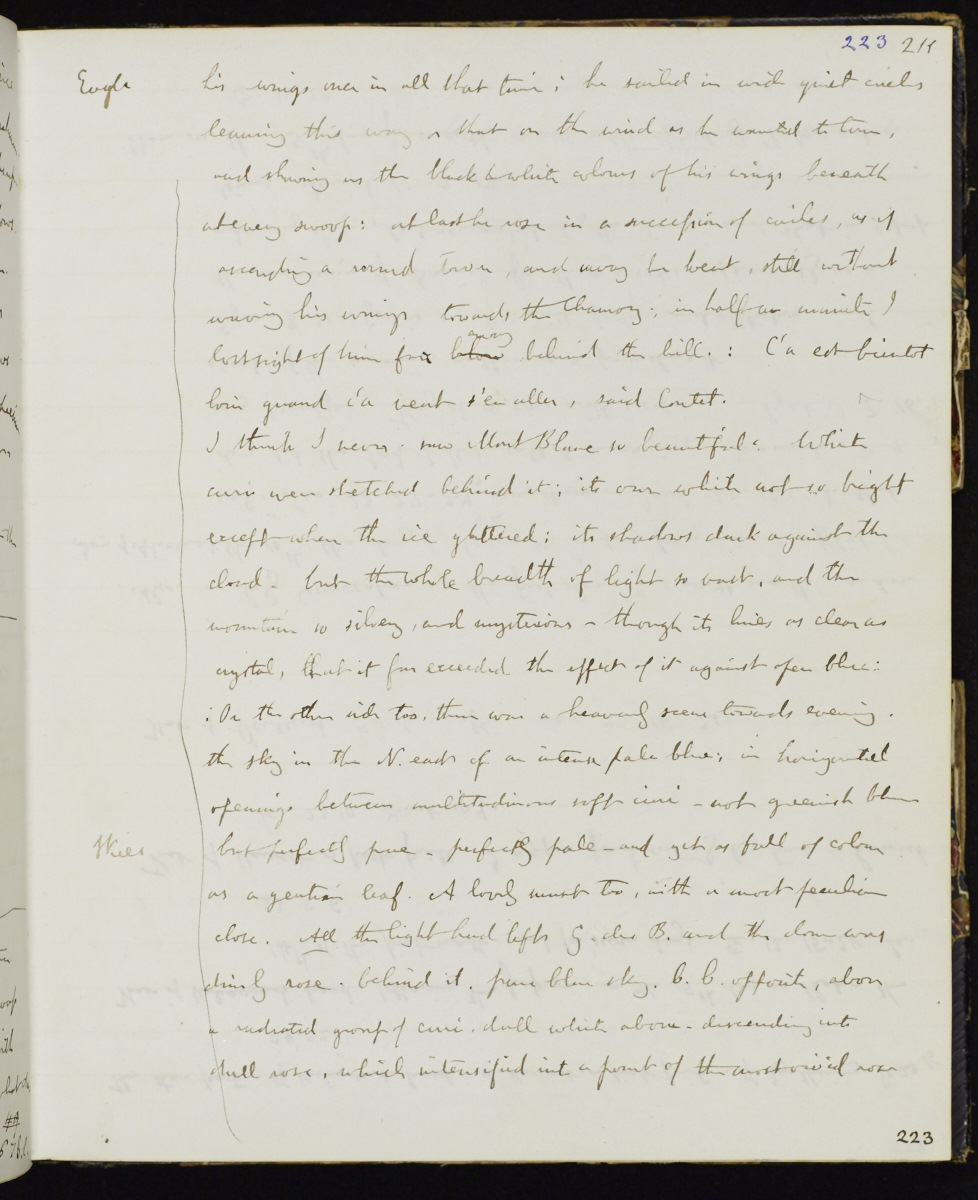 223 211
Eagle his wings once in all that time ; he sailed in wide quiet circles
leaning this way or that on the wind as he wanted to turn,
and showing us the black & white colours of his wings beneath
at every swoop : at last he rose in a succession of circles, as if
ascending a round tower, and away he went, still without
waving his wings towards the Chamony ; in half a minute I
lost sight of him far below away behind the hill. : C'a est bientot
loin quand c'a veut s'en aller, said Coutet.
I think I never saw Mont Blanc so beautiful. White
cirri were stretched behind it ; its own white not so bright
except where the ice glittered ; its shadows dark against the
cloud - but the whole breadth of light so vast, and the
mountain so silvery, and mysterious - though its lines as clear as
crystal, that it far exceeded the effect of it against open blue :
: On the other side too, there was a heavenly scene towards evening.
the sky in the N. east of an intense pale blue ; in horizontal
openings between multitudinous soft cirri - not greenish blue
Skies but perfectly pure - perfectly pale - and yet as full of colour
as a gentian leaf. A lovely sunset too, with a most peculiar
close. All the light had left G. des B. and the dome was
dimly rose - behind it, pure blue sky. opposite, above
a radiated group of cirri. dull white above - descending into
dull rose, which intensified into a point of the most vivid rose
223